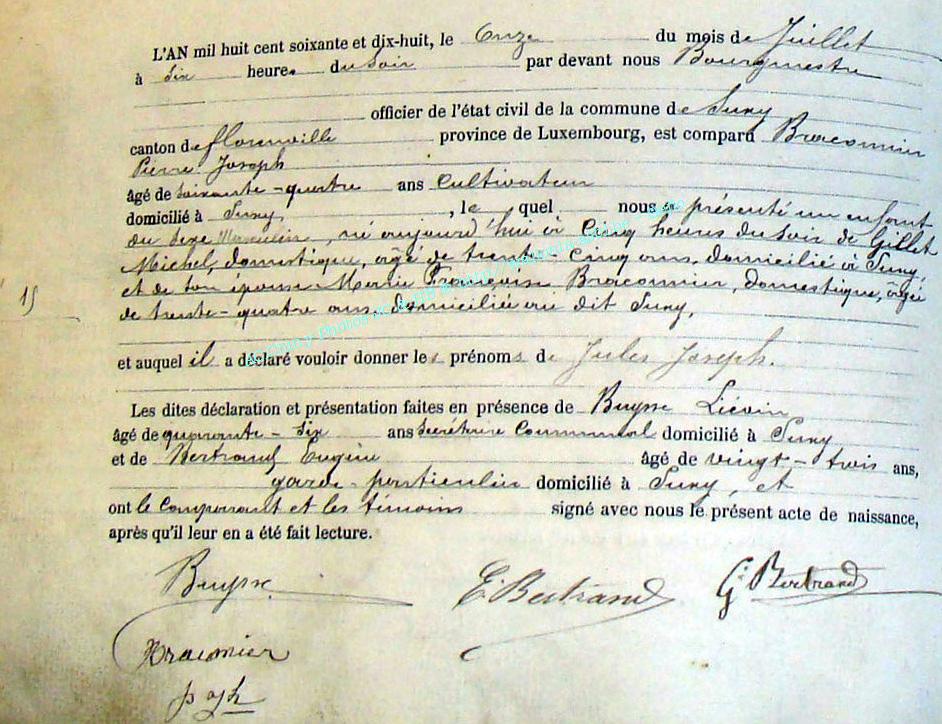 L'AN mil huit cent soixante et dix-huit, le Onze du mois de Juillet
à six heures du soir par devant nous Bourgmestre
officier de l'état civil de la commune de Suny
canton de florenville province de Luxembourg, est comparu Braconnier
Pierre Joseph
âgé de soixante-quatre ans Cultivateur
domicilié à Suny, le quel nous a présenté un enfant
du sexe Masculin, né aujourd'hui à Cinq heures du soir de Gillet
Michel, domestique, âgé de trente-cinq ans, domicilié à Suny
et de son épouse Marie Françoise Braconnier, domestique, âgée
de trente-quatre ans, domiciliée au dit Suny,
15
et auquel il a déclaré vouloir donner les prénoms de Jules Joseph.
Les dites déclaration et présentation faites en présence de Buysse Liévin
âgé de quarante-six ans Secrétaire Communal domicilié à Suny
et de Bertrand Eugène âgé de vingt-trois ans,
garde-particulier domicilié à Suny, et
ont le comparant et les témoins signé avec nous le présent acte de naissance,
après qu'il leur en a été fait lecture.
Buysse E. Bertrand G. Bertrand
Braconier